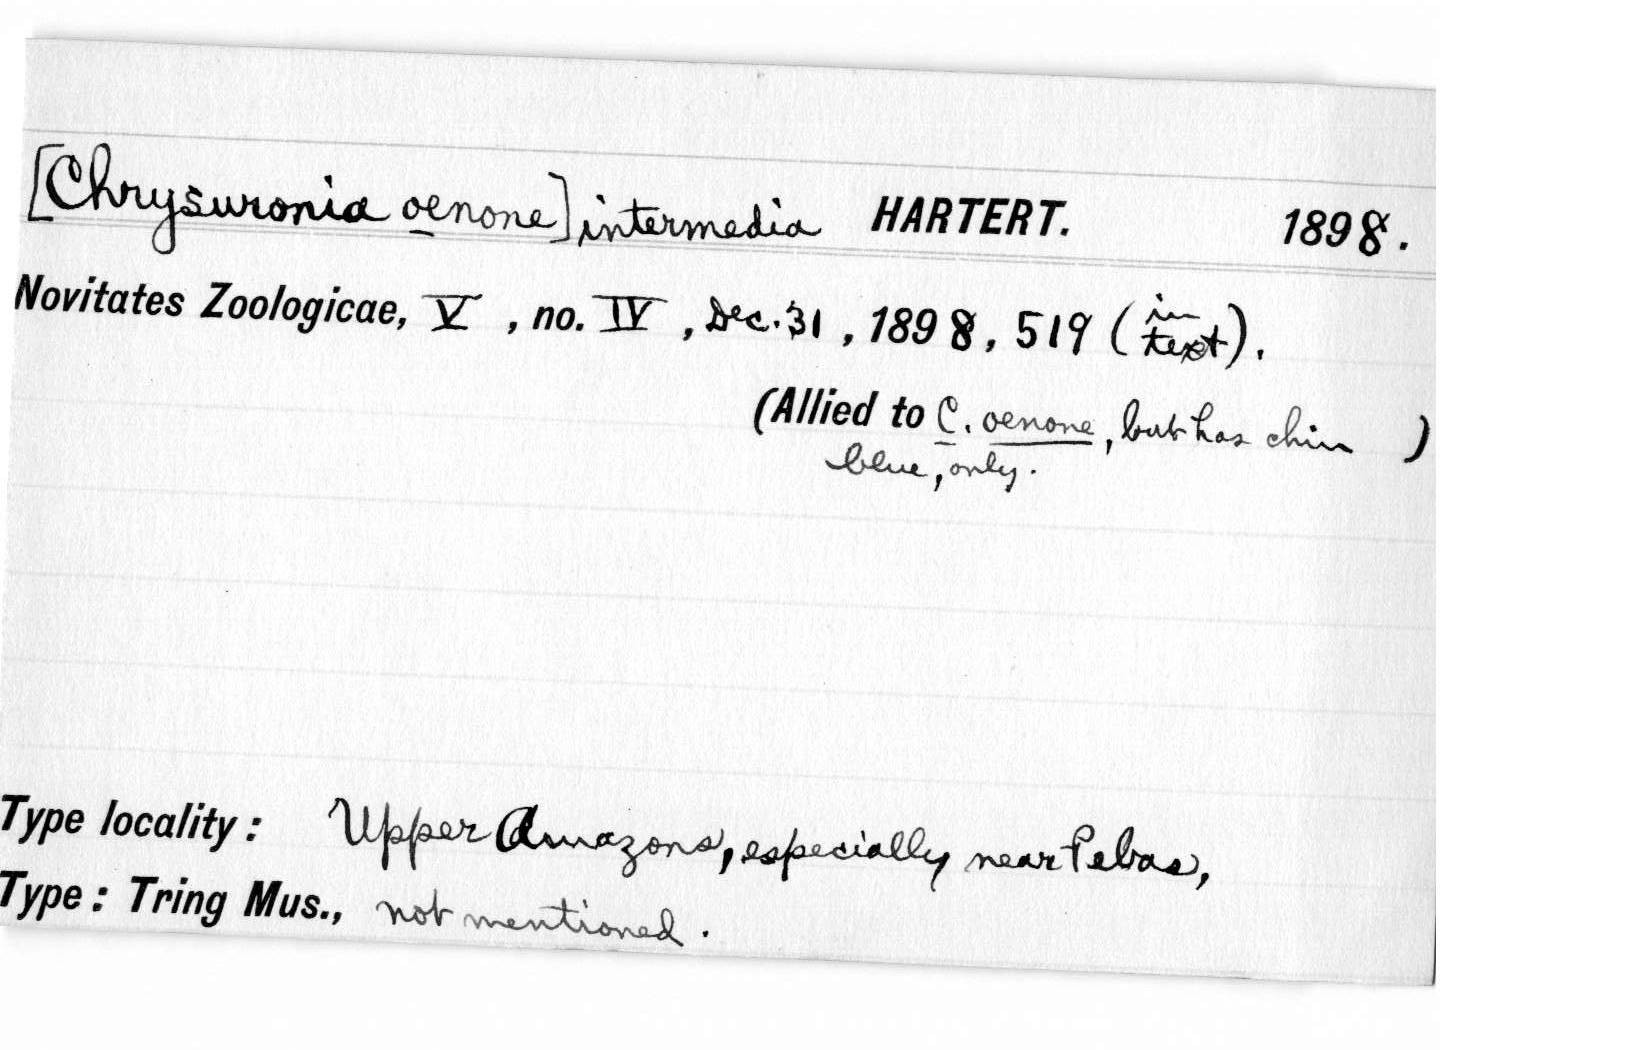 [Chrysuronia oenone] intermedia HARTERT. 1898.
Novitates Zoologicae, V, no. IV, Dec. 31, 1898, 519 (in text).
(Allied to C. oenone, but has chin )
blue, only.
Type locality: Upper Amazons, especially near Pebas,
Type: Tring Mus., not mentioned.